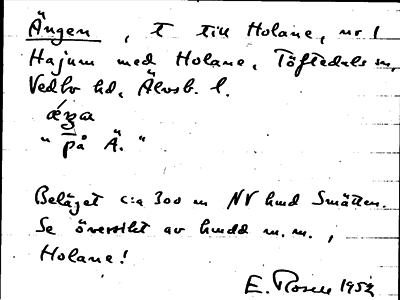 Ängen, t till Holane, nr 1
Hajum med Holane, Töftedals sn,
Vedbo hd, Älvsb. l.
"på Ä."
Beläget c:a 300 m NV hmd Smätten.
Se översikt av hmdd m.m.,
Holane!
E. Rosell 1952